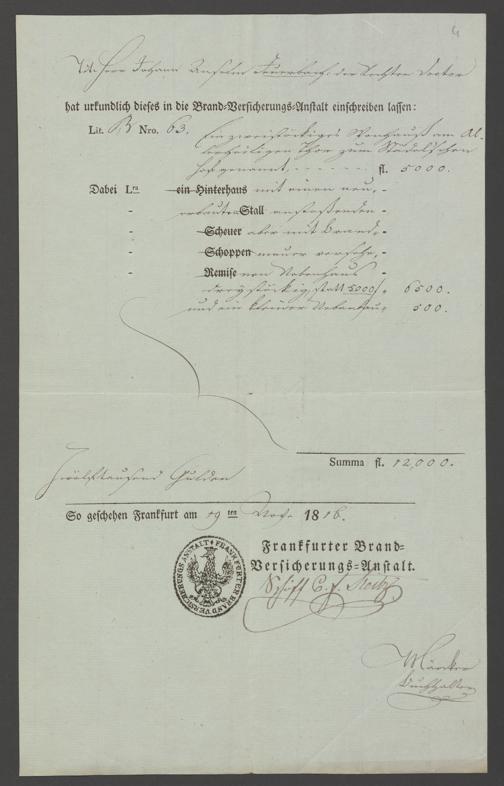 4
Tit. Herr Johann Anselm Feuerbach, der Rechten Doctor
hat urkundlich dieses in die Brand-Versicherungs-Anstalt einschreiben lassen:
Lit. B Nro. 63. Ein zweistöckiges Wohnhauß am Al-
lerheiligen Thor zum Städelschen
Hof genannt, - - - - - fl. 5000.
Dabei L.ra ein Hinterhaus mit einen neu, -
- erbauten Stall anstoßenden -
- Scheuer aber mit Brand, -
- Schoppen mauer versehe, -
- Remise nen Nebenhaus -
dreystöckig, statt 5000/ - 6500.
und ein kleiner Nebenbau - 500.
Summa fl. 12,000.
Zwölftausend Gulden
So geschehen Frankfurt am 19 ten Novr 1816.
Frankfurter Brand-
Versicherungs-Anstalt.
FRANKFURTER BRAND VERSICHERUNGS ANSTALT
Schöff C. F.
Buchhalter